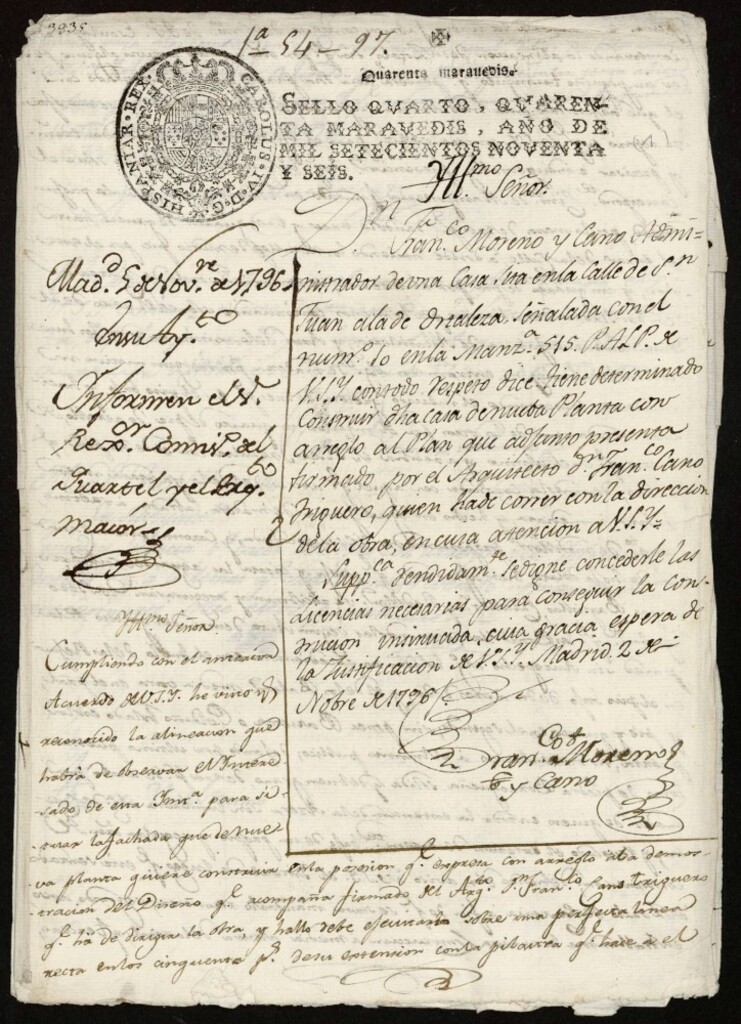 3935
1ª 54-97.
Quarenta maravedis.
CAROLUS·IV·D·G·HISPANIAR·REX·
SELLO QVARTO, QVAREN-
TA MARAVEDIS, AÑO DE
MIL SETECIENTOS NOVENTA
Y SEIS.
Yllmo Señor
Dn Franco. Moreno y Cano Admi-
nistrador de una Casa sita en la Calle de Sn
Juan a la de Ortaleza, señalada con el
numo. 10 en la Manza. 515. P.A.L.P. de
V.S.Y. con todo respeto dice: tiene determinado
Construir dha casa de nueba Planta con
arreglo al Plan que adjunto presenta
firmado por el Arquitecto dn. Franco. Cano
Triguero, quien hade correr con la direccion
de la obra, en cuia atencion a V.S.Y.
Suppca. rendidamte. se digne concederle las
Licencias necesarias para conseguir la Cons-
trucion insinuada, cuia gracia espera de
la Justificacion de V.S.Y. Madrid 2 de
Nobre de 1796
Fran.co Moreno
y Cano
Madd. 5 de Novre. de 1796
En su Ayto.
Informen el Sr.
Rexor. Comiso. del
Quartel y el Arqto.
maior
Yllmo Señor
Cumpliendo con el antecedte
Acuerdo de V.S.Y. he visto y
reconocido la alineacion que
habrá de observar el Intere-
sado de esta Insta. para si-
tuar la fachada que de nue-
va planta quiere construir en la posesion qe. expresa con arreglo a la demos-
tracion del Diseño qe. acompaña firmado del Arqto. Dn. Franco. Cano Triguero
qe. ha de dirigir la obra, y hallo debe ejecutarla sobre una perfecta linea
recta en los cinquenta ps. de su extension con la pilastra qe. hace a el